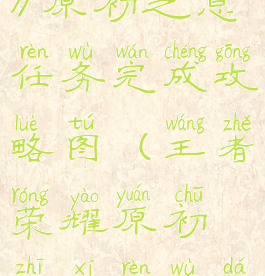 》原初之息
rèn wù wán chéng gōng
任务完成攻
lüè tú wáng zhě
略图（王者
róng yào yuán chū
荣耀原初
zhī xī rèn wù dá